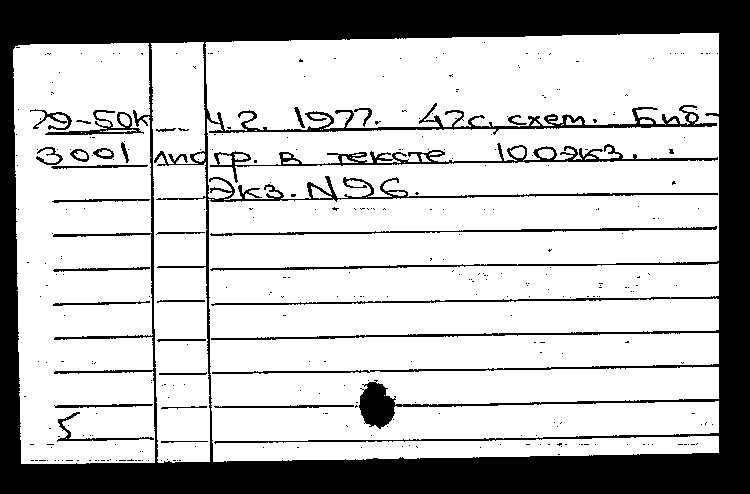 79-50к Ч.2. 1977. 47с, схем. Биб-
3001 лиогр. в тексте 100экз.
Экз. N96.
5